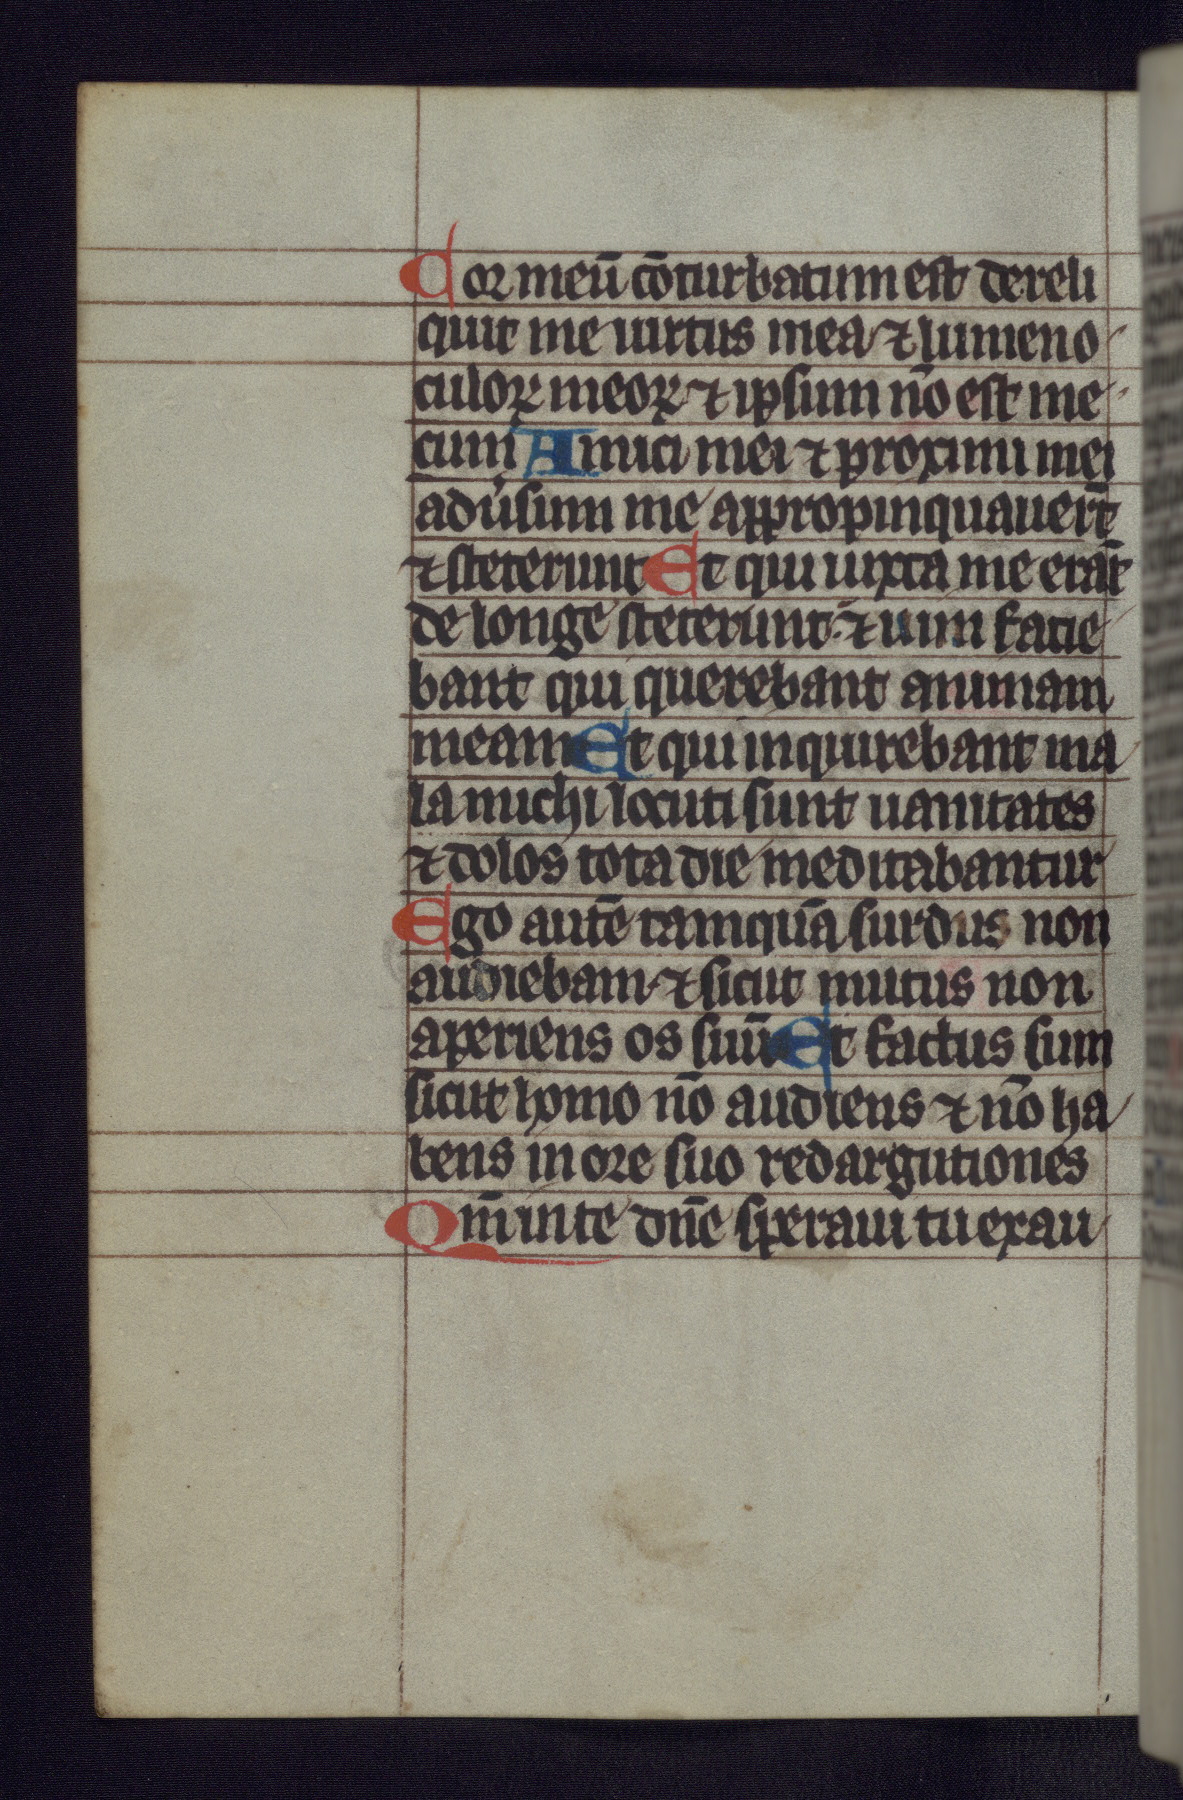 Cor meū cōturbatum est dereli
quit me uirtus mea ⁊ lumen o
culoꝝ meoꝝ ⁊ ipsum nō est me
cum Amici mei ⁊ proximi mei
adūsum me appropinquauerūt
⁊ steterunt Et qui iuxta me erāt
de longe steterunt ⁊ uim facie
bant qui querebant animam
meam Et qui inquirebant ma
la michi locuti sunt uanitates
⁊ dolos tota die meditabantur
Ego autē tamquā surdus non
audiebam ⁊ sicut mutus non
aperiens os suū Et factus sum
sicut homo nō audiens ⁊ nō ha
bens in ore suo redargutiones
Qm̄ in te dn̄e speraui tu exau